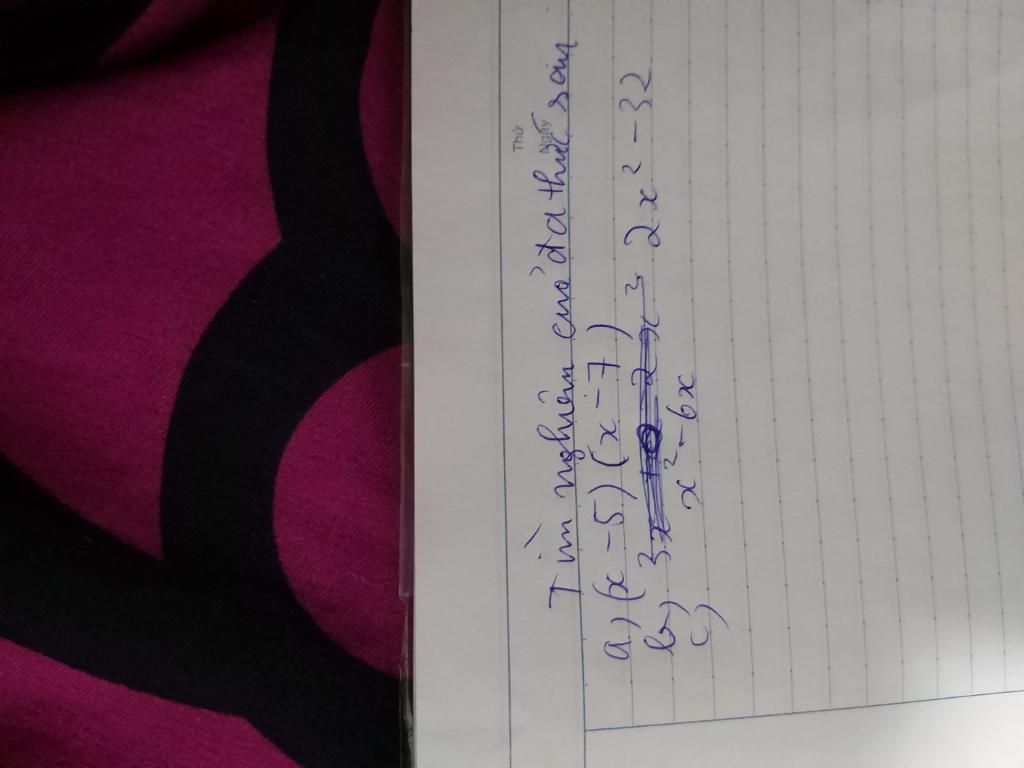 Thứ
Ngày
Tìm nghiệm của đa thức sau
a) (x - 5) (x - 7)
b) 2x² - 32
c) x² - 6x